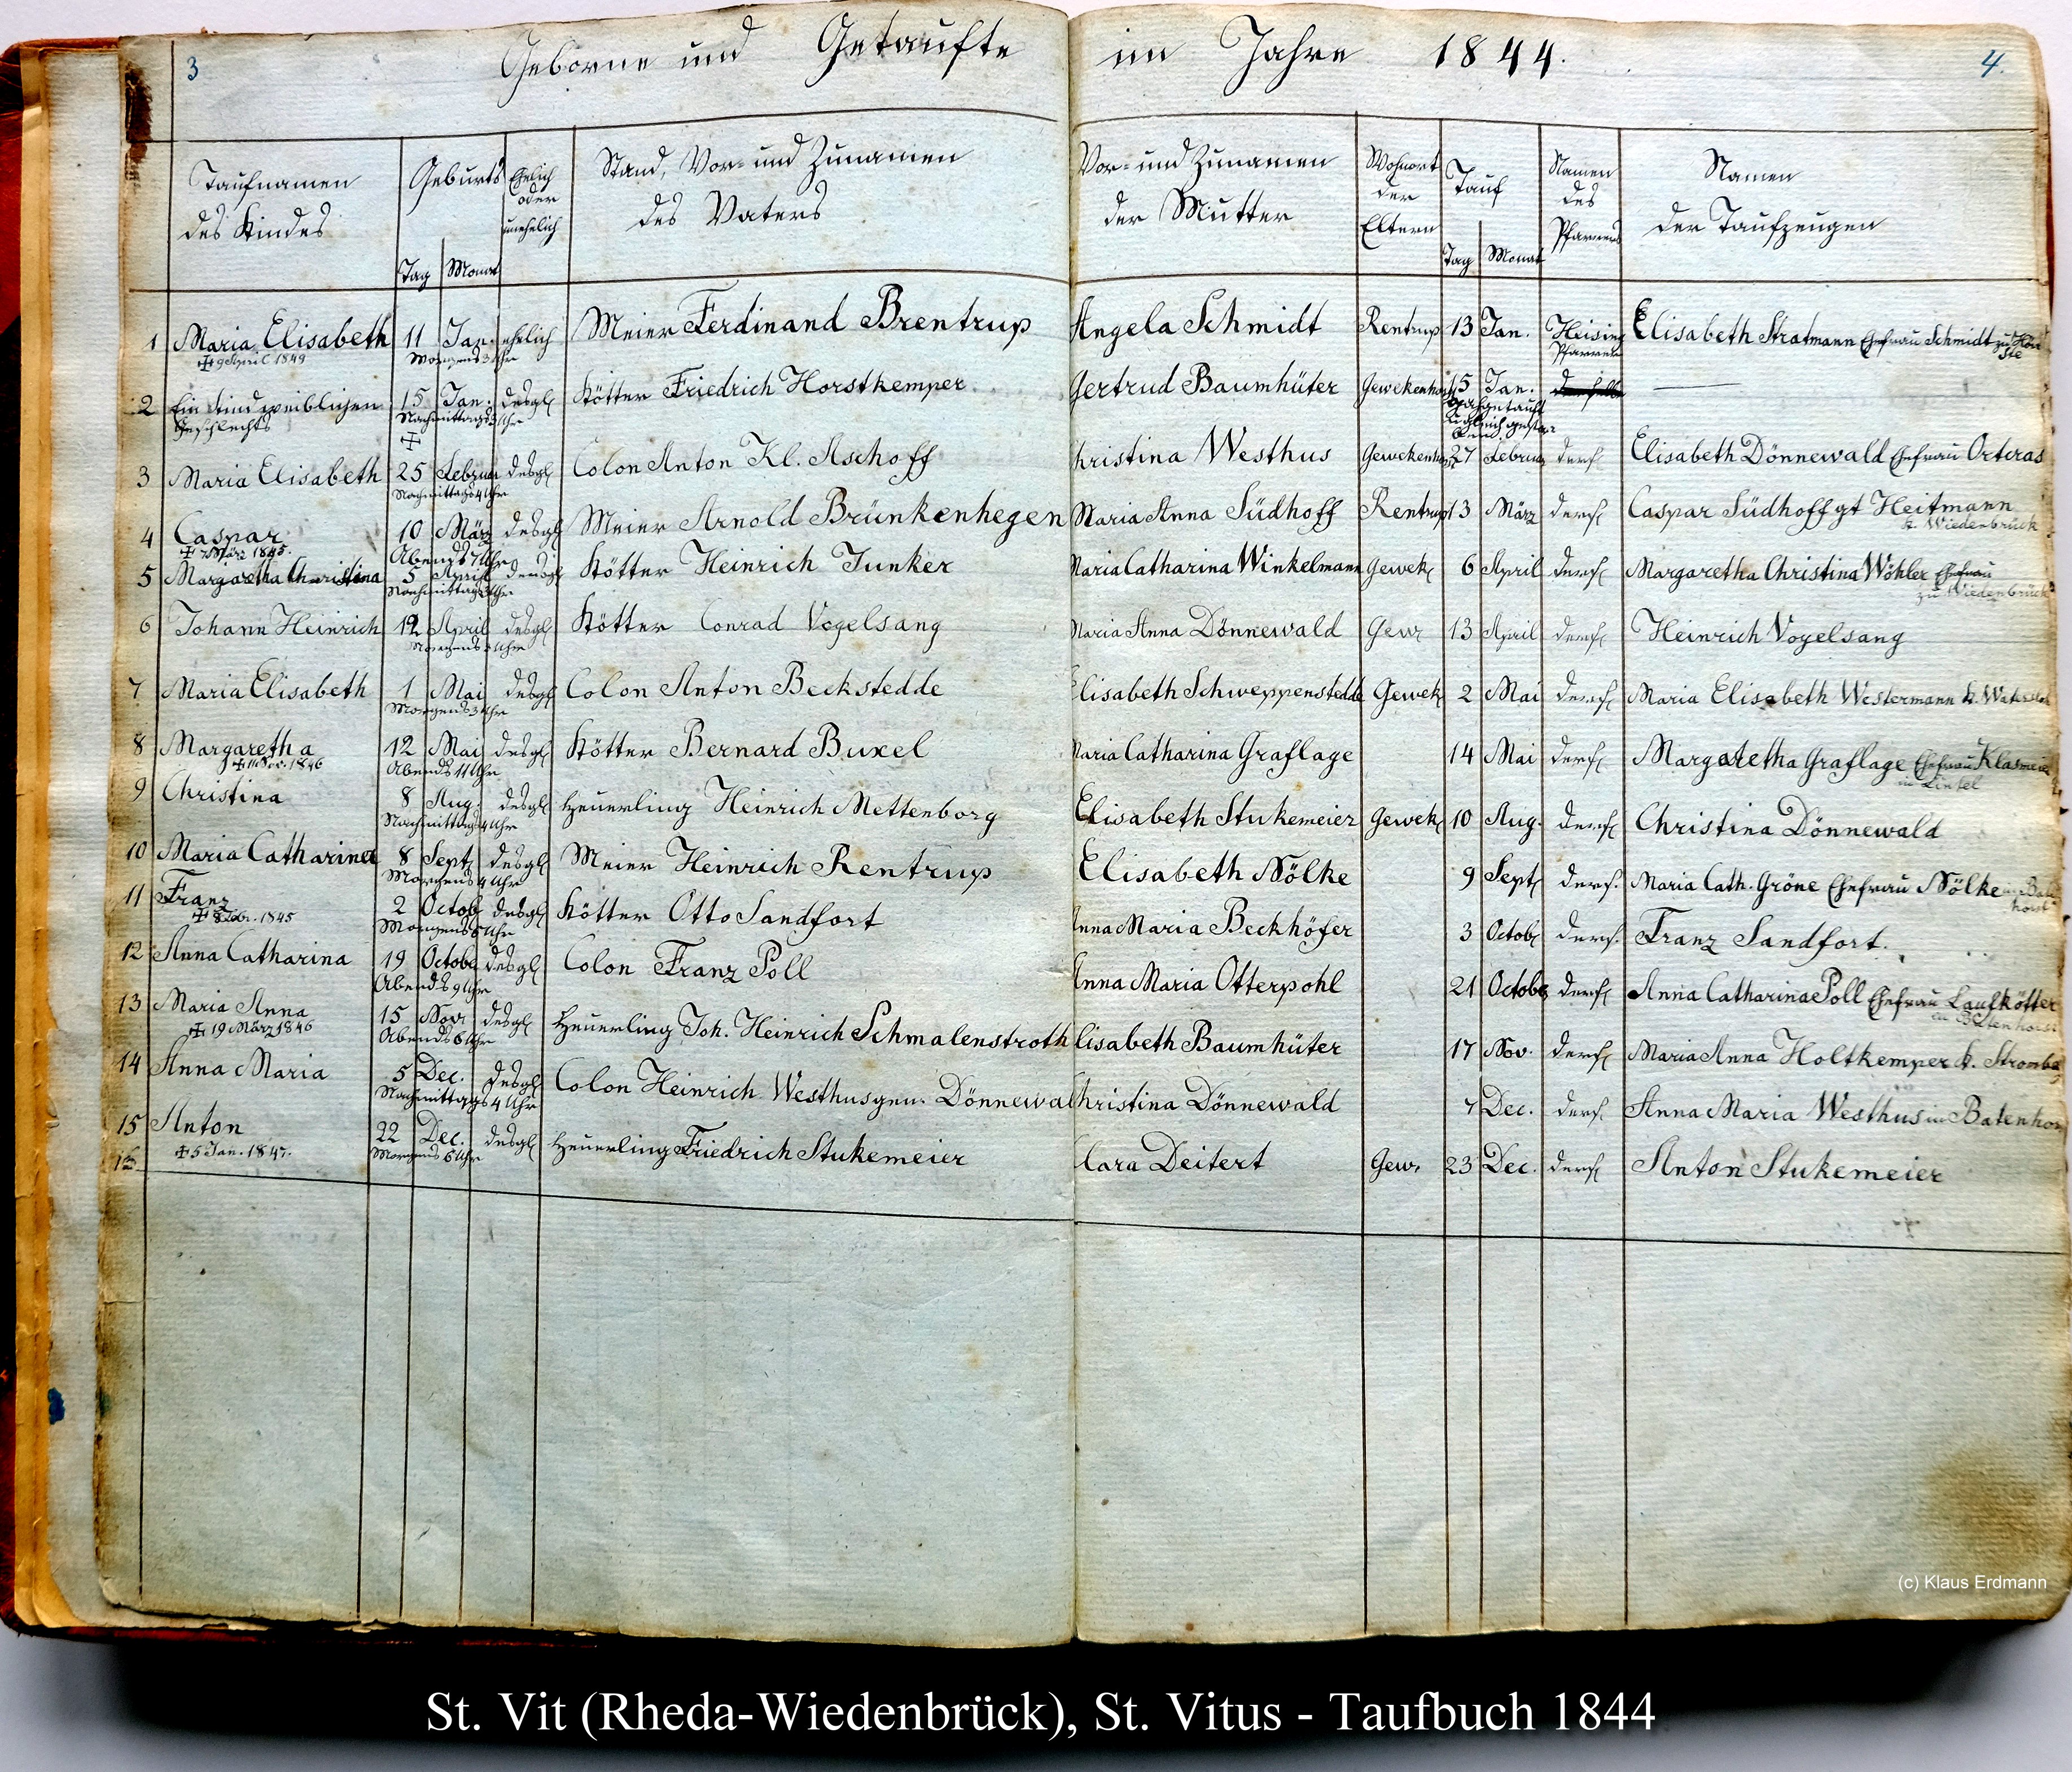 3 Geborne und Getaufte im Jahre 1844. 4.
Taufnamen des Kindes
Geburts
Tag Monat
Ehelich oder unehelich
Stand, Vor- und Zunamen des Vaters
Vor- und Zunamen der Mutter
Wohnort der Eltern
Tauf
Tag Monat
Namen des Pfarrers
Namen der Taufzeugen
1 Maria Elisabeth 11 Jan. ehelich Meier Ferdinand Brentrup Angela Schmidt Rentrup 13 Jan. Heising Elisabeth Stratmann Ehefrau Schmidt
✠ 9 April 1849 Morgens 3 Uhr Pfarrer
2 Ein Kind weiblichen 15 Jan. desgl Kötter Friedrich Horstkemper Gertrud Baumhüter Gewekenhorst 15 Jan.
Geschlechts Nachmittags 3 Uhr
✠
3 Maria Elisabeth 25 Februar desgl Colon Anton Kl. Aschoff Christina Westhus Gewekenhorst 27 Februar ders Elisabeth Dönnewald Ehefrau Ortcras
Nachmittags 4 Uhr
4 Caspar 10 März desgl Meier Arnold Brünkenhegen Maria Anna Südhoff Rentrup 13 März ders Caspar Südhoff gt Heitmann
✠ 7 März 1845. Abends 7 Uhr k. Wiedenbrück
5 Margaretha Christina 5 April desgl Kötter Heinrich Junker Maria Catharina Winkelmann Gewek 6 April ders Margaretha Christina Wöhler Ehefrau
Nachmittags 3 Uhr zu Wiedenbrück
6 Johann Heinrich 12 April desgl Kötter Conrad Vogelsang Maria Anna Dönnewald Gew 13 April ders Heinrich Vogelsang
Morgens 3 Uhr
7 Maria Elisabeth 1 Mai desgl Colon Anton Beckstedde Elisabeth Schweppenstedde Gewek 2 Mai ders Maria Elisabeth Westermann k.
Morgens 3 Uhr
8 Margaretha 12 Mai desgl Kötter Bernard Buxel Maria Catharina Graflage 14 Mai ders Margaretha Graflage Ehefrau Klasmeier
✠ 11 Nov. 1846 Abends 11 Uhr in Lintel
9 Christina 8 Aug. desgl Heuerling Heinrich Mettenborg Elisabeth Stukemeier Gewek 10 Aug. ders Christina Dönnewald
Nachmittags 4 Uhr
10 Maria Catharina 8 Sept desgl Meier Heinrich Rentrup Elisabeth Nölke 9 Sept ders. Maria Cath. Gröne Ehefrau Nölke in Baten
Morgens 4 Uhr horst
11 Franz 2 Octob desgl Kötter Otto Sandfort Anna Maria Beckhöfer 3 Octob ders. Franz Sandfort.
✠ 8 Febr. 1845 Morgens 6 Uhr
12 Anna Catharina 19 Octob desgl Colon Franz Poll Anna Maria Otterpohl 21 Octob ders Anna Catharina Poll Ehefrau Laufkötter
Abends 9 Uhr in Batenhorst
13 Maria Anna 15 Nov desgl Heuerling Joh. Heinrich Schmalenstroth Elisabeth Baumhüter 17 Nov. ders Maria Anna Holtkemper k. Stromberg
✠ 19 März 1846 Abends 6 Uhr
14 Anna Maria 5 Dec. desgl Colon Heinrich Westhus gen. Dönnewald Christina Dönnewald 7 Dec. ders. Anna Maria Westhus in Batenhorst
Nachmittags 4 Uhr
15 Anton 22 Dec. desgl Heuerling Friedrich Stukemeier Clara Deitert Gew. 23 Dec. ders Anton Stukemeier
✠ 5 Jan. 1847. Morgens 6 Uhr
(c) Klaus Erdmann
St. Vit (Rheda-Wiedenbrück), St. Vitus - Taufbuch 1844